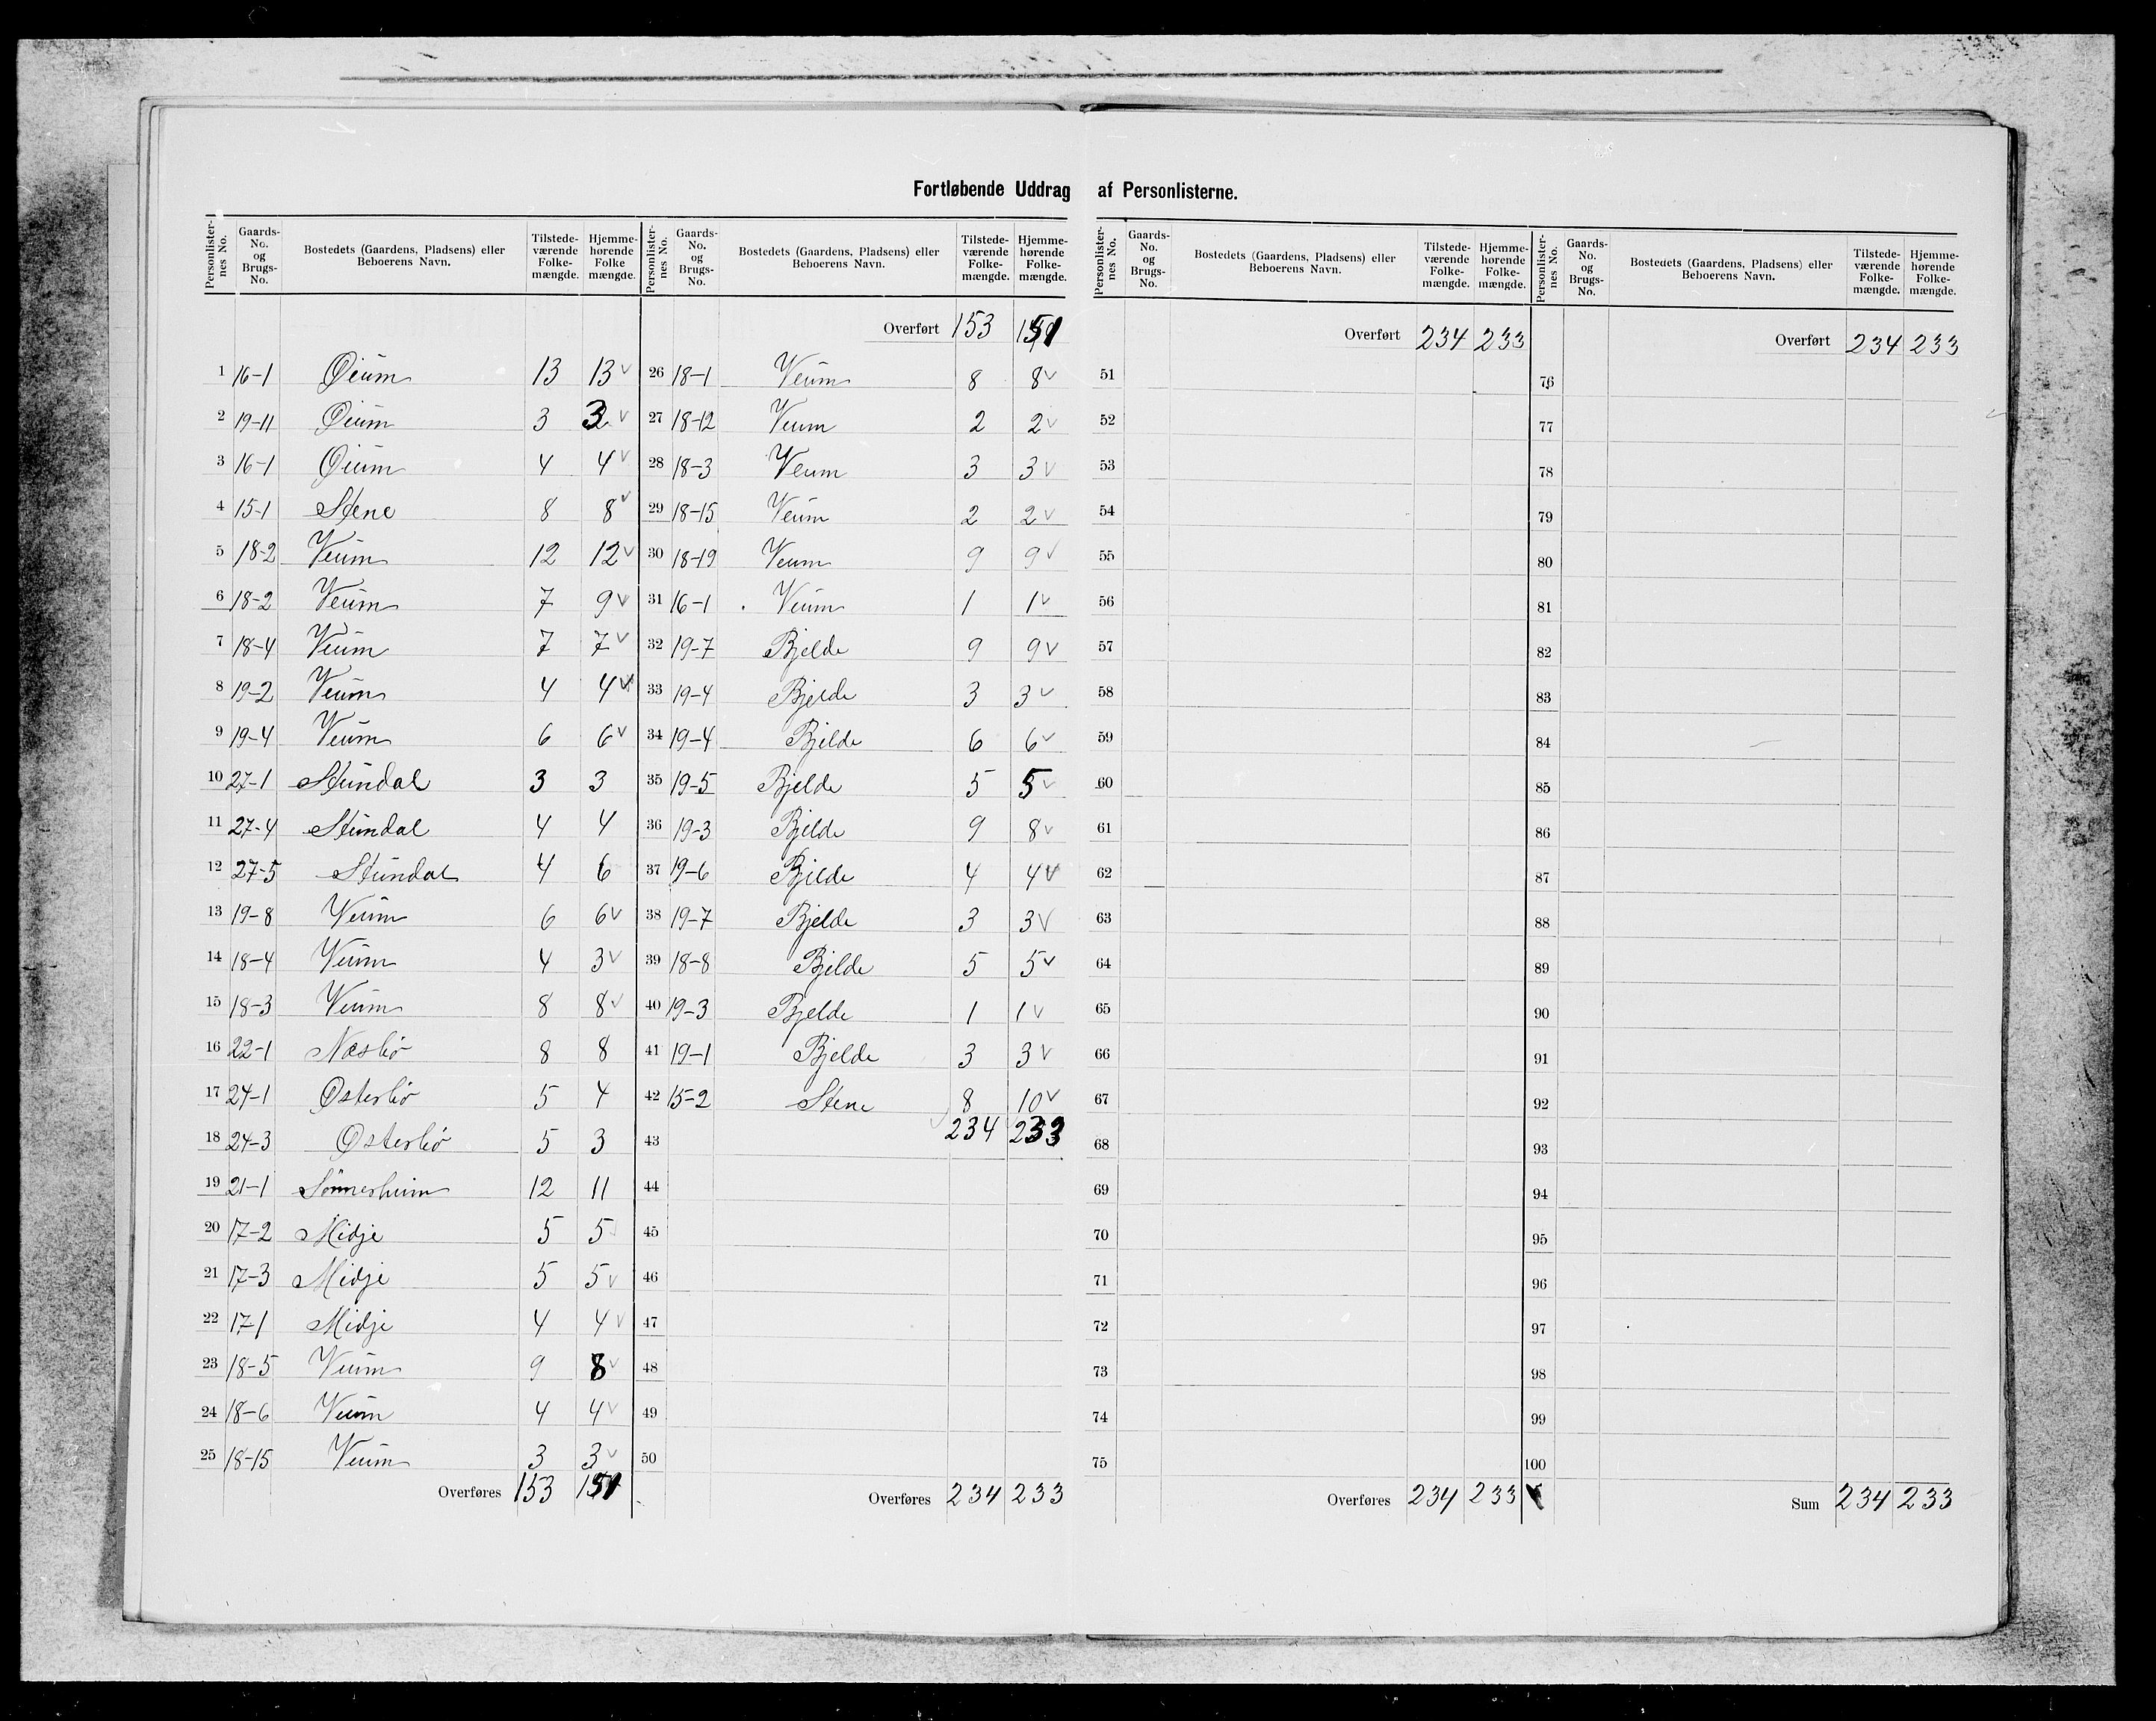 Fortløbende Uddrag af Personlisterne.
Personlisternes No. Gaards-No. og Brugs-No. Bostedets (Gaardens, Pladsens) eller Beboerens Navn. Tilstedeværende Folkemængde. Hjemmehørende Folkemængde.
1 16-1 Øium 13 13 v
2 19-11 Øium 3 3 v
3 16-1 Øium 4 4 v
4 15-1 Stene 8 8 v
5 18-2 Veum 12 12 v
6 18-2 Veum 7 9 v
7 18-4 Veum 7 7 v
8 19-2 Veum 4 4 v
9 19-4 Veum 6 6 v
10 27-1 Stundal 3 3
11 27-4 Stundal 4 4
12 27-5 Stundal 4 6
13 19-8 Veum 6 6 v
14 18-4 Veum 4 3 v
15 18-3 Veum 8 8 v
16 22-1 Næsbø 8 8
17 24-1 Østerbø 5 4
18 24-3 Østerbø 5 3
19 21-1 Sønnerheim 12 11
20 17-2 Midje 5 5
21 17-3 Midje 5 5 v
22 17-1 Midje 4 4 v
23 18-5 Veum 9 8 v
24 18-6 Veum 4 4 v
25 18-15 Veum 3 3 v
Overføres 153 151
Personlisternes No. Gaards-No. og Brugs-No. Bostedets (Gaardens, Pladsens) eller Beboerens Navn. Tilstedeværende Folkemængde. Hjemmehørende Folkemængde.
Overført 153 151
26 18-1 Veum 8 8 v
27 18-12 Veum 2 2 v
28 18-3 Veum 3 3 v
29 18-15 Veum 2 2 v
30 18-19 Veum 9 9 v
31 16-1 Veum 1 1 v
32 19-7 Bjelde 9 9 v
33 19-4 Bjelde 3 3 v
34 19-4 Bjelde 6 6 v
35 19-5 Bjelde 5 5 v
36 19-3 Bjelde 9 8 v
37 19-6 Bjelde 4 4 v
38 19-7 Bjelde 3 3 v
39 18-8 Bjelde 5 5 v
40 19-3 Bjelde 1 1 v
41 19-1 Bjelde 3 3 v
42 15-2 Stene 8 10 v
43 234 233
44
45
46
47
48
49
50
Overføres 234 233
Personlisternes No. Gaards-No. og Brugs-No. Bostedets (Gaardens, Pladsens) eller Beboerens Navn. Tilstedeværende Folkemængde. Hjemmehørende Folkemængde.
Overført 234 233
51
52
53
54
55
56
57
58
59
60
61
62
63
64
65
66
67
68
69
70
71
72
73
74
75
Overføres 234 233
Personlisternes No. Gaards-No. og Brugs-No. Bostedets (Gaardens, Pladsens) eller Beboerens Navn. Tilstedeværende Folkemængde. Hjemmehørende Folkemængde.
Overført 234 233
76
77
78
79
80
81
82
83
84
85
86
87
88
89
90
91
92
93
94
95
96
97
98
99
100
Sum 234 233